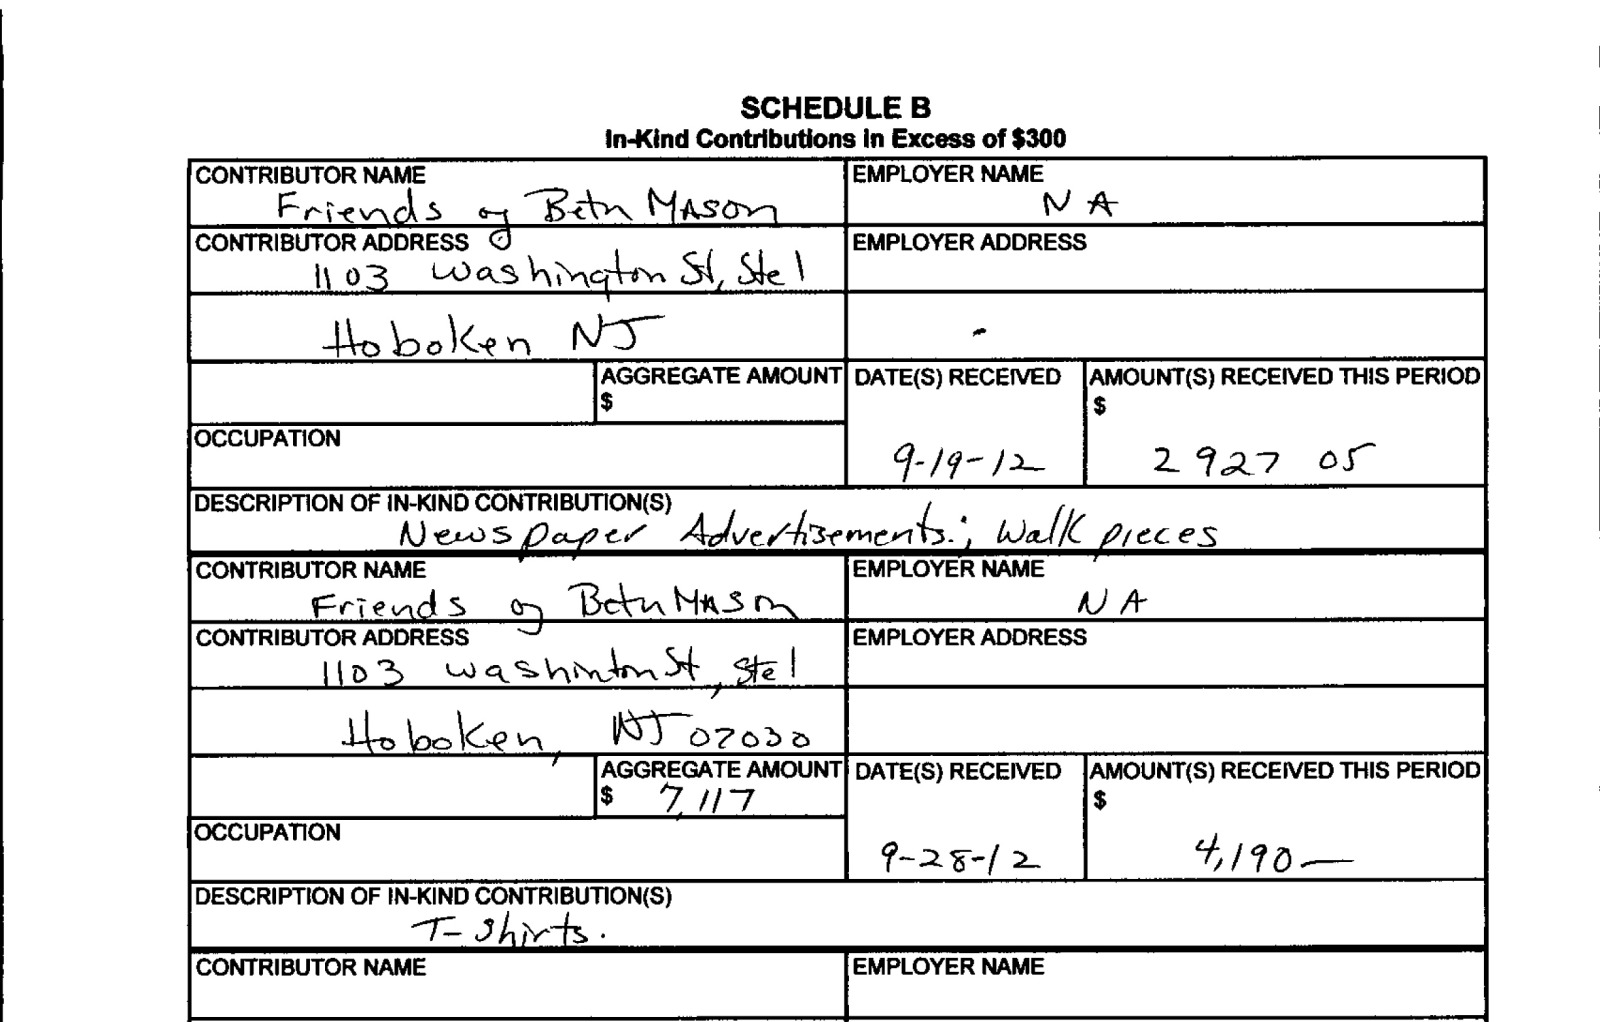 SCHEDULE B
In-Kind Contributions in Excess of $300
CONTRIBUTOR NAME EMPLOYER NAME
Friends of Beth Mason NA
CONTRIBUTOR ADDRESS EMPLOYER ADDRESS
1103 Washington St, Ste 1
Hoboken NJ
AGGREGATE AMOUNT DATE(S) RECEIVED AMOUNT(S) RECEIVED THIS PERIOD
$ $
OCCUPATION
9-19-12 2927 05
DESCRIPTION OF IN-KIND CONTRIBUTION(S)
Newspaper Advertisements.; Walk pieces
CONTRIBUTOR NAME EMPLOYER NAME
Friends of Beth Mason NA
CONTRIBUTOR ADDRESS EMPLOYER ADDRESS
1103 Washinton St, Ste 1
Hoboken, NJ 07030
AGGREGATE AMOUNT DATE(S) RECEIVED AMOUNT(S) RECEIVED THIS PERIOD
$ 7,117 $
OCCUPATION
9-28-12 4,190—
DESCRIPTION OF IN-KIND CONTRIBUTION(S)
T-Shirts.
CONTRIBUTOR NAME EMPLOYER NAME